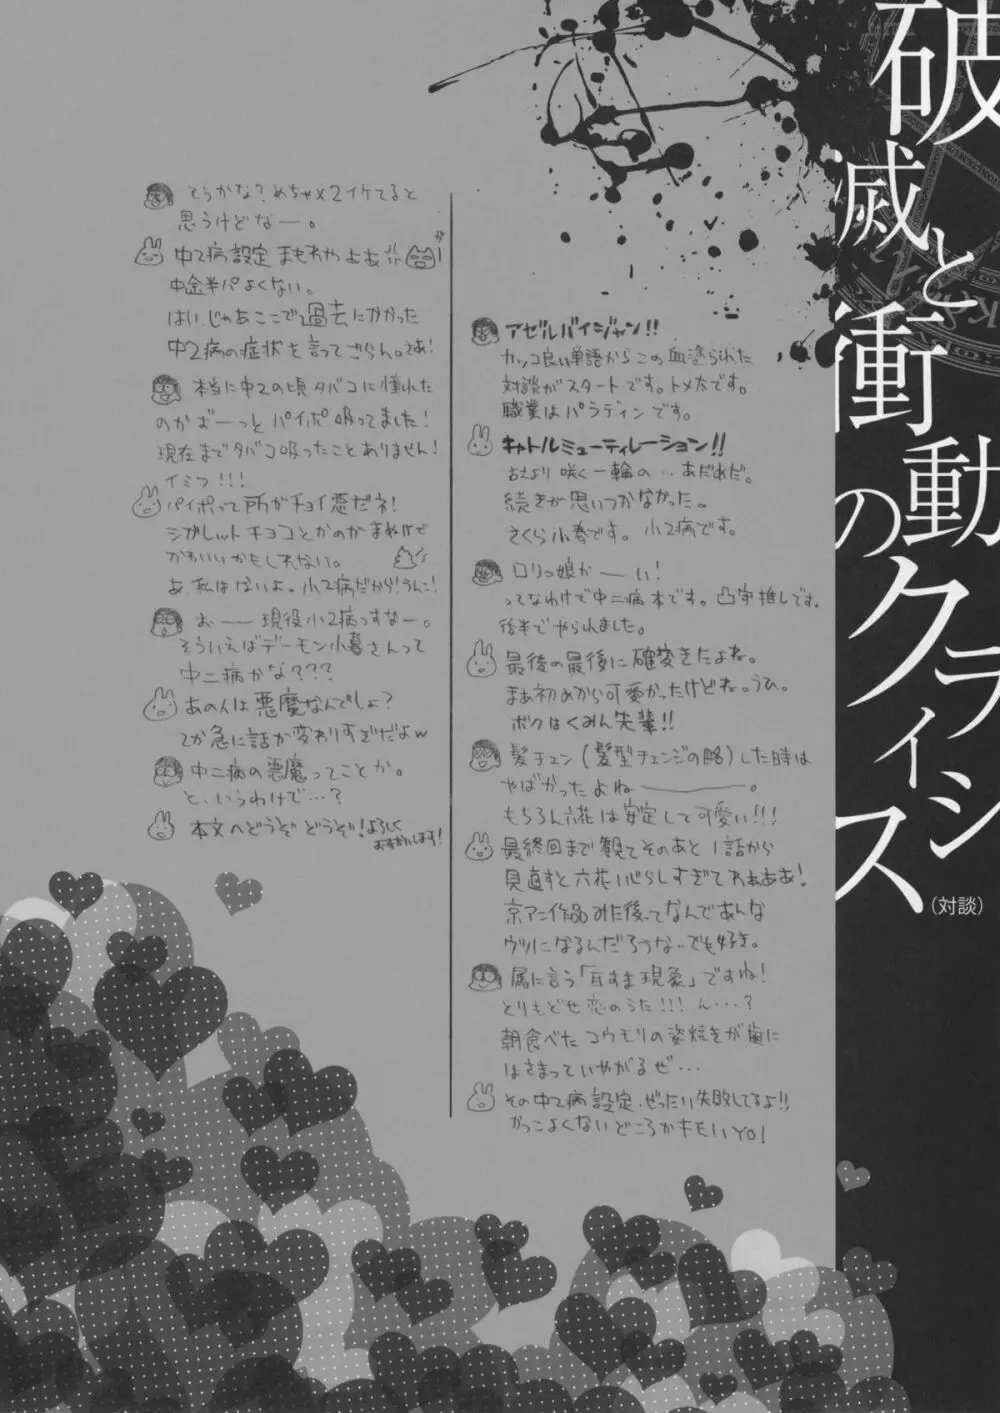 破滅と衝動のクライシス
(対談)
アゼルバイジャン!!
カッコ良い単語からこの血塗られた
対談がスタートです。トメ太です。
職業はパラディンです。
キャトルミューティレーション!!
咲く一輪の…あだれだ。
続きが思いつかなかった。
さくら小春です。小2病です。
ロリっ娘かーい!
ってなわけで中二病本です。凸守推しです。
後半でやられました。
最後の最後に確変きたよね。
まあ初めから可愛かったけどね。うひ。
ボクはくみん先輩!!
髪チェン(髪型チェンジの略)した時は
やばかったよねー。
もちろん六花は安定して可愛い!!!
最終回まで観てそのあと1話から
見直すと六花いじらしすぎてわぁああ!
京アニ作品みた後ってなんであんな
ウツになるんだろうな…でも好き。
属に言う「耳すま現象」ですね!
とりもどせ恋のうた!!!ん…?
朝食べたコウモリの姿焼きが歯に
はさまっていやがるぜ…
その中2病設定、ぜったい失敗してるよ!!
かっこよくないどころかキモいYO!
そうかな?めちゃ×2イケてると
思うけどなー。
中2病設定まもれやよぉ!!
中途半パよくない。
はい、じゃあここで過去にかかった
中2病の症状を言ってごらん。さあ!
本当に中2の頃タバコに憧れた
のかずーっとパイポ吸ってました!
現在までタバコ吸ったことありません!
イミフ!!!
パイポって所がチョイ悪だネ!
シガレットチョコとかのがまぬけで
かわいいかもしれない。
あ、私はないよ。小2病だから!うんこ!
おーー現役小2病っすなー。
そういえばデーモン小暮さんって
中二病かな???
あの人は悪魔なんでしょ?
てか急に話が変わりすぎだよw
中二病の悪魔ってことか。
と、いうわけで…?
本文へどうぞどうぞ!よろしく
おねがいします!